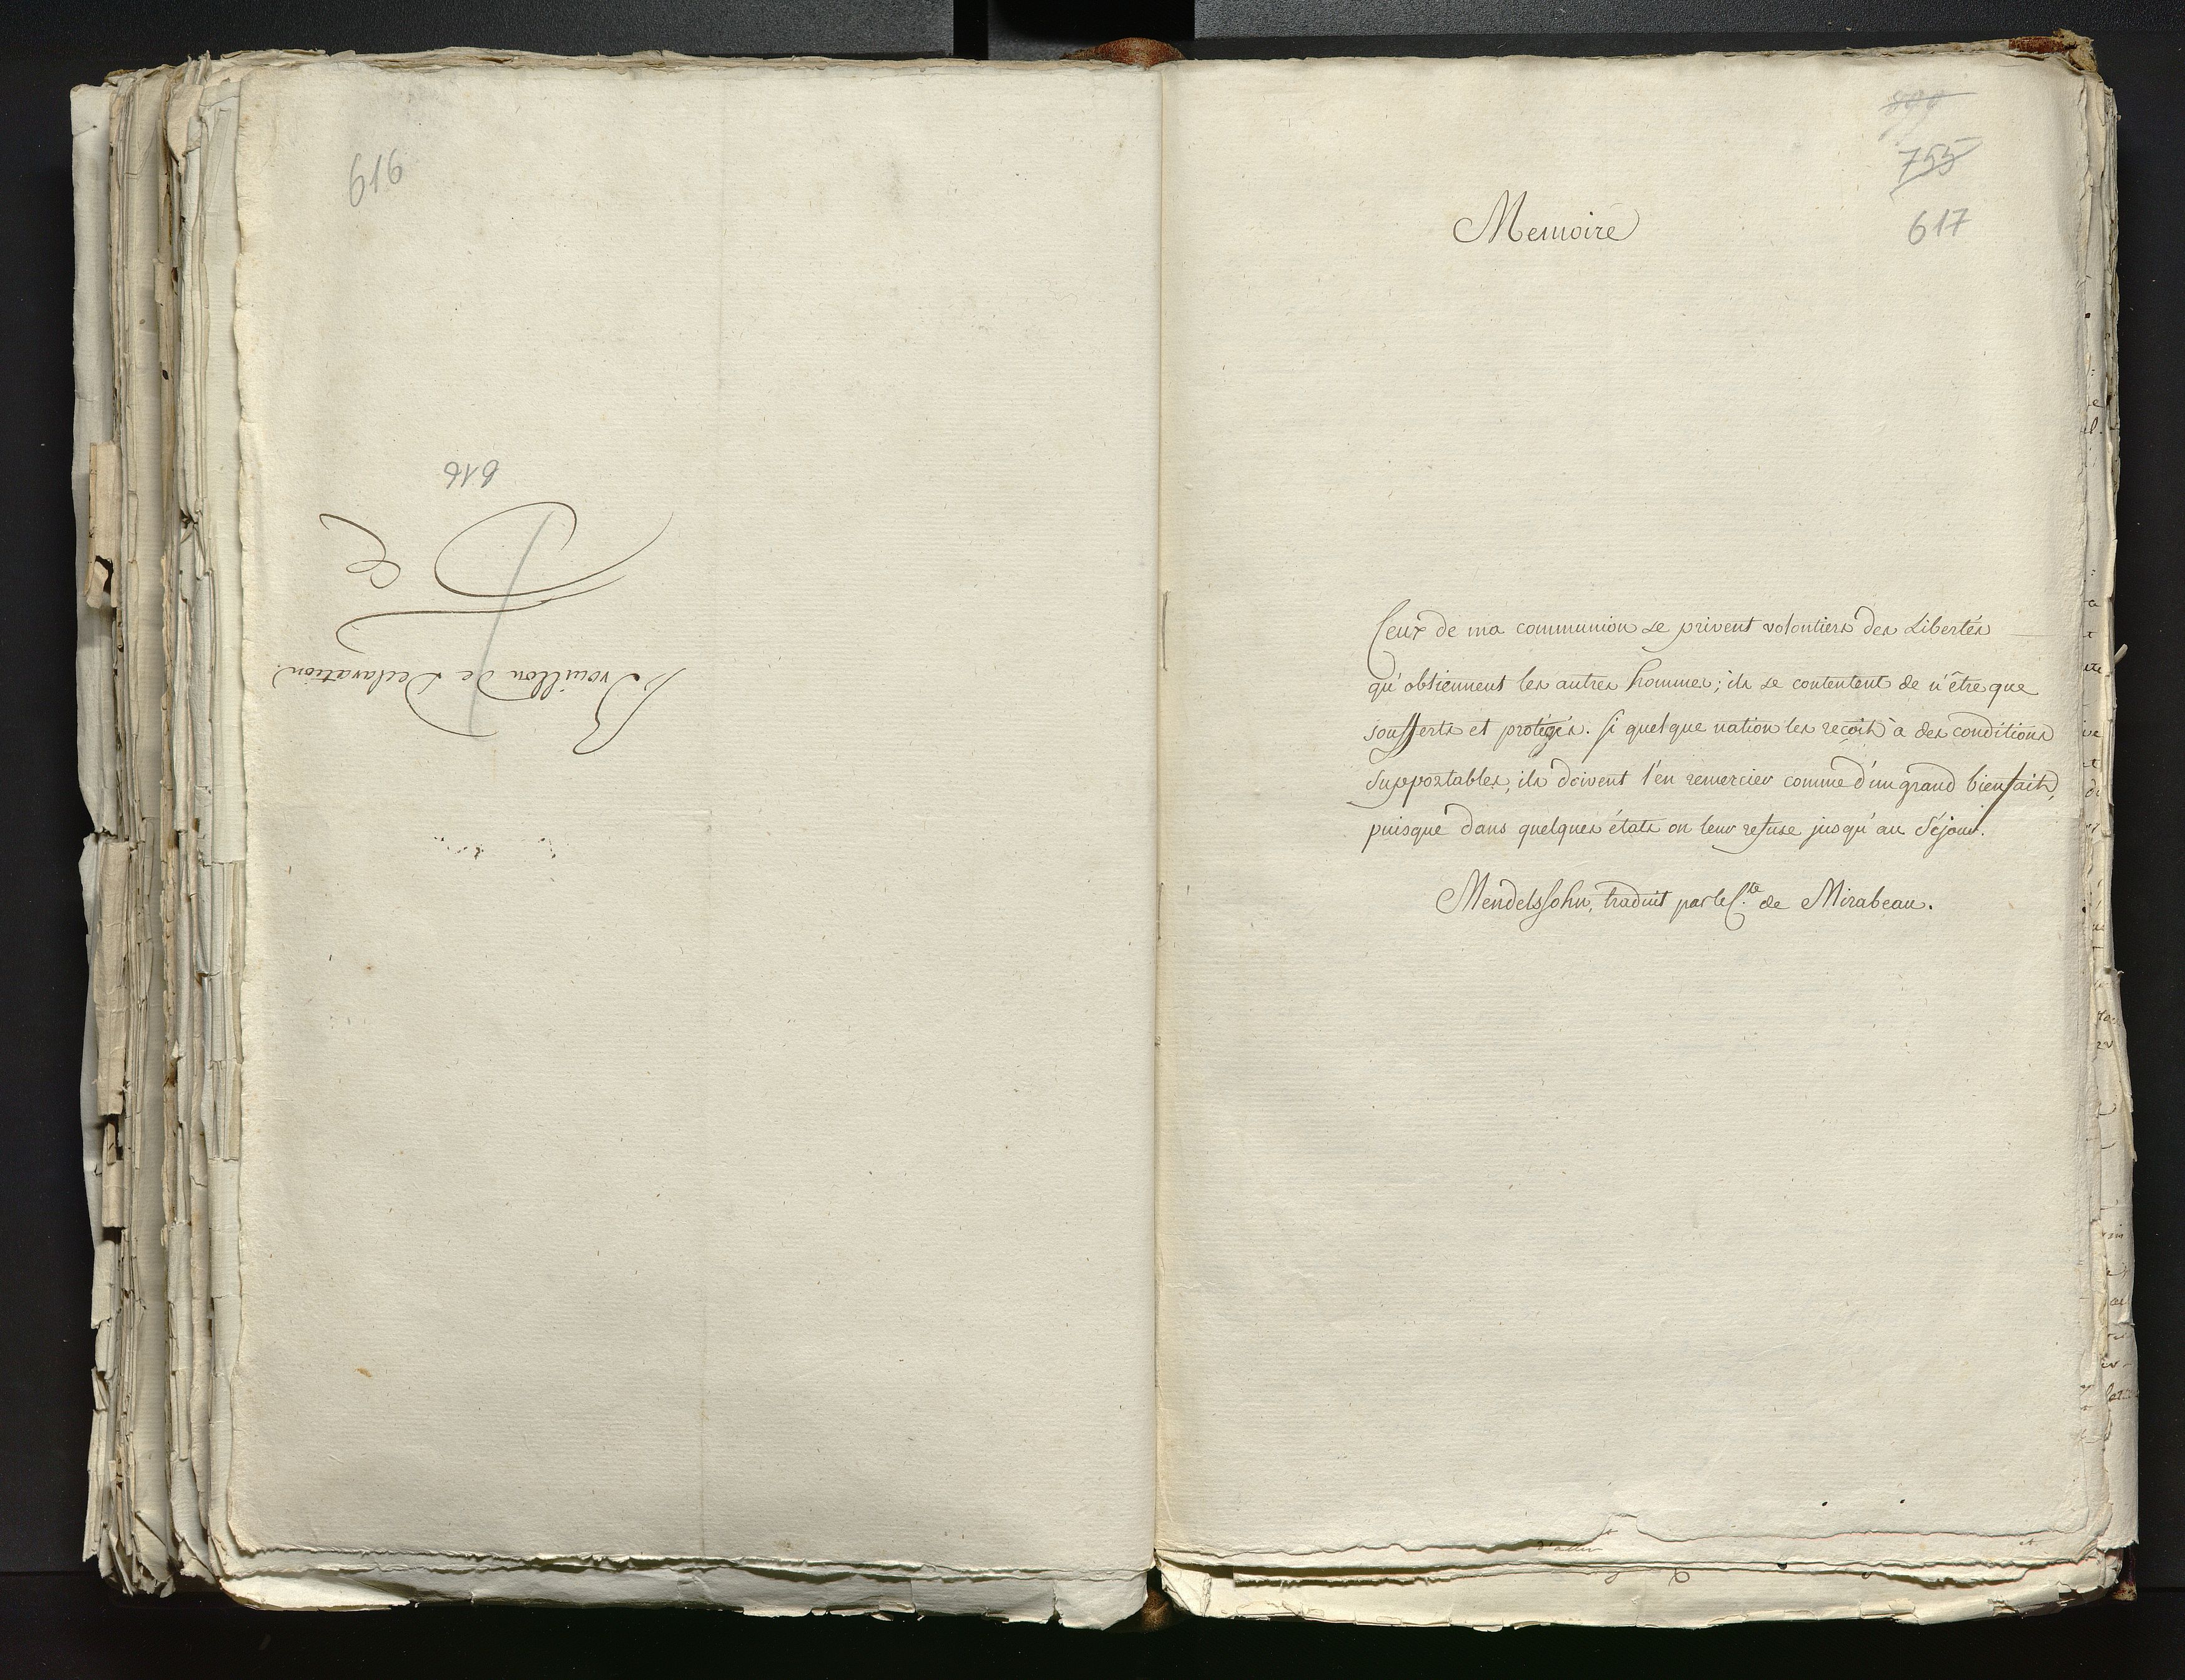 616
616
Brouillon de Declaration.
800
755
617
Memoire
Ceux de ma communion se privent volontiers des Libertés
qu'obtiennent les autres hommes; ils se contentent de n'être que
soufferts et protégés. Si quelque nation les reçoit à des conditions
supportables, ils doivent l'en remercier comme d'un grand bienfait,
puisque dans quelques états on leur refuse jusqu'au séjour.
Mendelssohn, traduit par le C.te de Mirabeau.